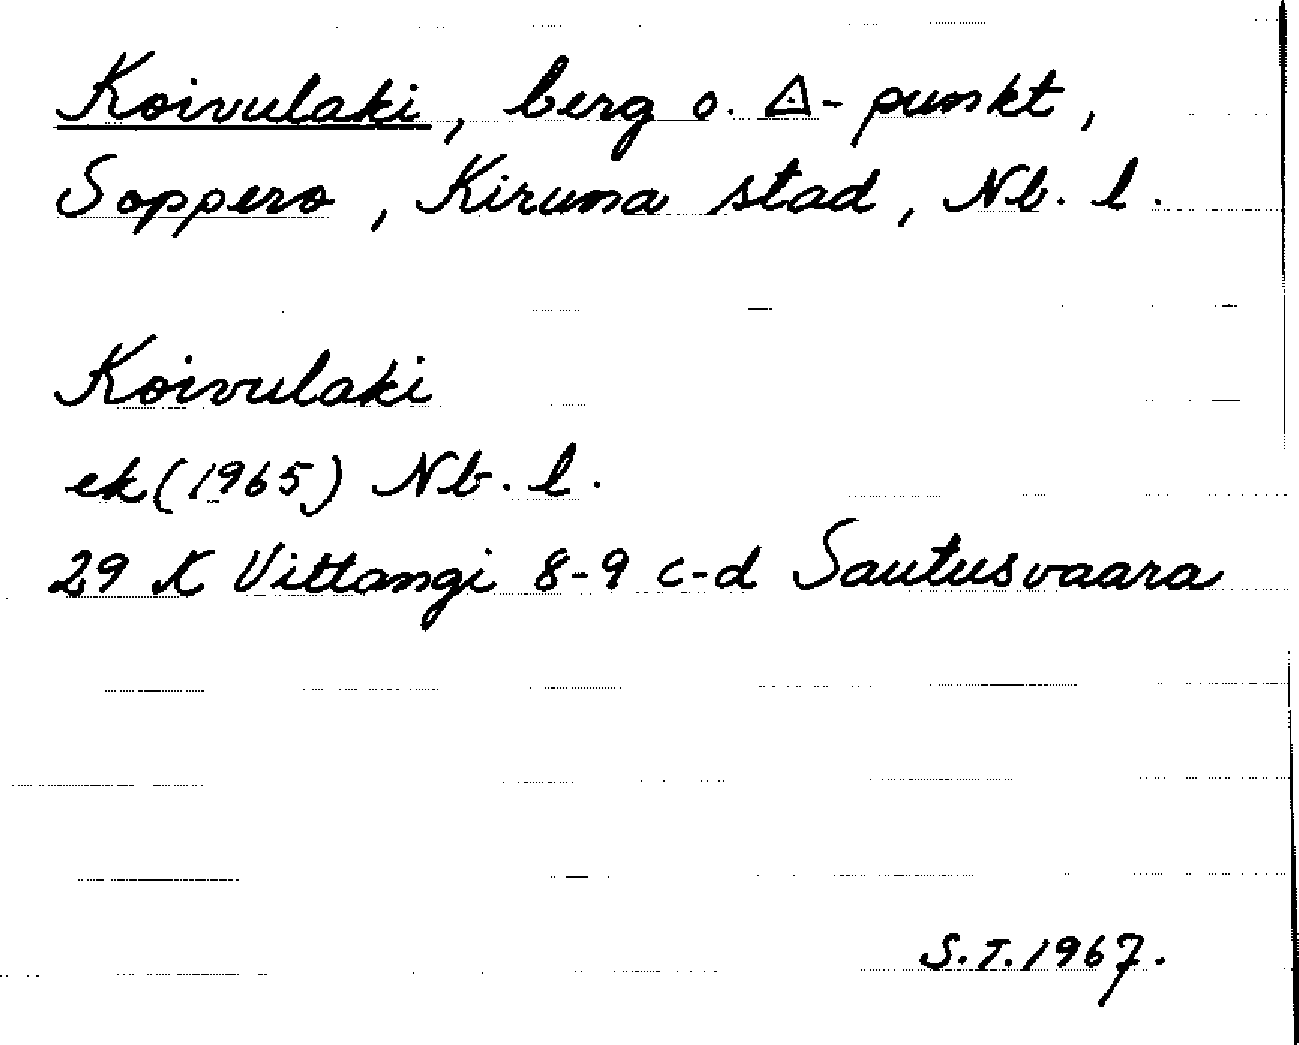 Koivulaki, berg o. △-punkt,
Soppero, Kiruna stad, Nb. l.
Koivulaki
ek (1965) Nb. l.
29 K Vittangi 8-9 c-d Sautusvaara
S.T. 1967.